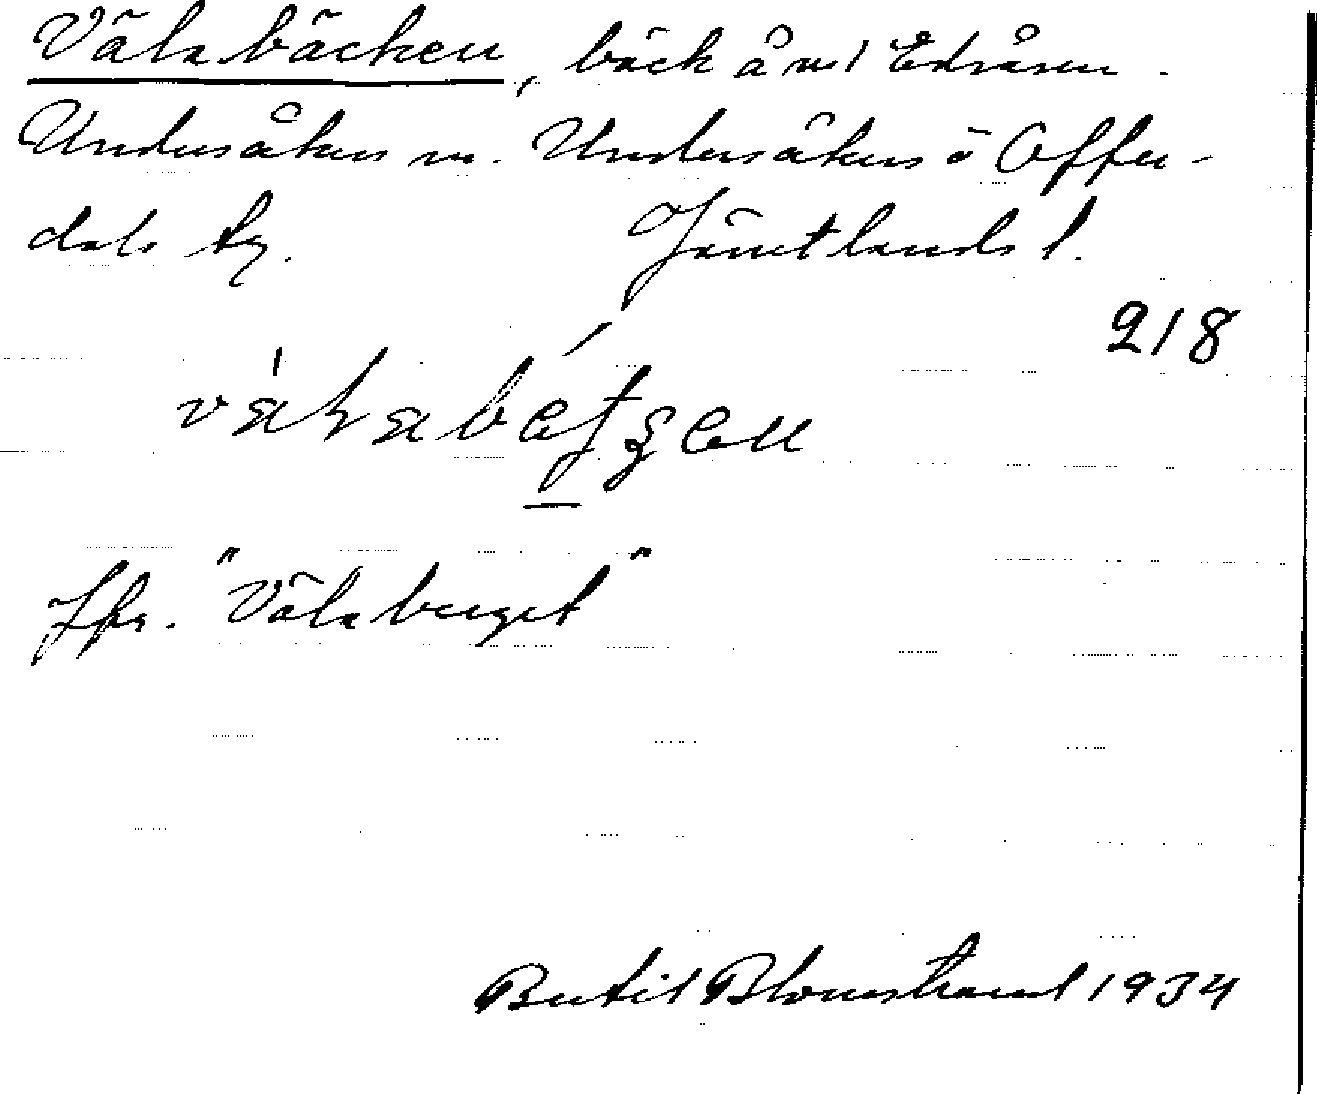 Välabäcken, bäck å v. Edsåsen.
Undersåkers sn. Undersåkers o Offer-
dals tg. Jämtlands l.
218
Jfr. "Välaberget"
Bertil Blomstrand 1934